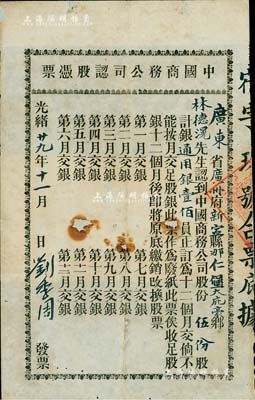 上海泓盛拍卖
中國商務公司認股憑票
廣東省廣州府新寧縣那仁
林德滉先生認到中國商務公司股份伍份股
計銀通用銀壹佰員正訂為十二個月交倘不
能按月交足股銀此票作為廢紙此票俟收足股
銀十二個月後即將原底繳銷改換股票
第一月交銀 第七月交銀
第二月交銀 第八月交銀
第三月交銀 第九月交銀
第四月交銀 第十月交銀
第五月交銀 第十一月交銀
第六月交銀 第十二月交銀
光緒廿九年十一月 日 發票